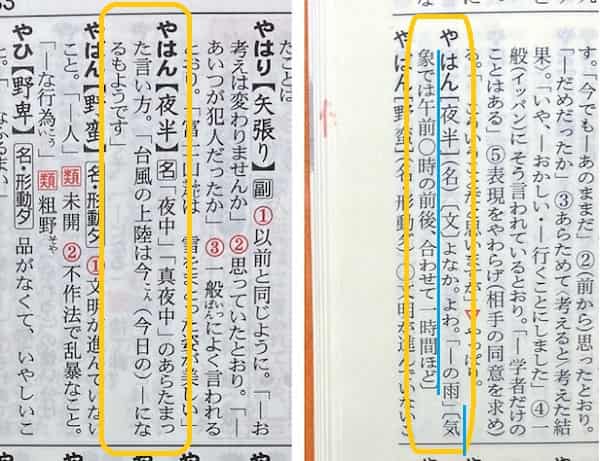 たことは
やはり【矢張り】副①以前と同じように。「―お
考えは変わりませんか」②思っていたとおり。「―
あいつが犯人だったか」③一般によく言われる
とおり。「富士山は 雪をまとった姿が美しい」
やはん【夜半】名「夜中」「真夜中」のあらたまっ
た言い方。「台風の上陸は今(今日の)―にな
るもようです」
やばん【野蛮】名・形動ダ①文明が進んでいない
こと。「―人」類未開②不作法で乱暴なこと。
「―な行為」類粗野
やひ【野卑】名・形動ダ品がなくて、いやしいこ
す。「今でも―あのままだ」②(前から)思ったとおり。
「―だめだったか」③あらためて考えると考えた結
果。「いや、―おかしい・―行くことにしました」④一
般(イッパン)にそう言われているとおり。「―学者だけの
ことはある」⑤表現をやわらげ(相手の同意を求め)
る。「 思いますが」▼やっぱり。
やはん【夜半】(名)〔文〕よなか。よわ。「―の雨」〔気
象では午前〇時の前後、合わせて一時間ほど〕
やばん【野蛮】(名・形動ダ)①文明が進んでいないこ